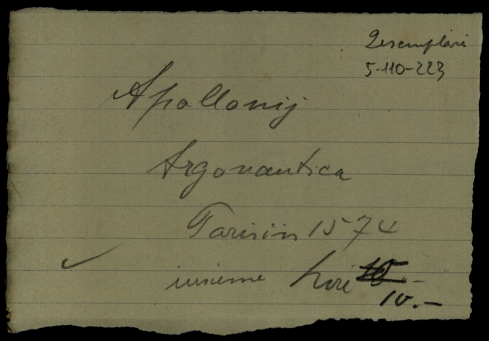 2 esemplari
5-110-223
Apollonij
Argonautica
Parisiis 1574
insieme Lire 15.-
10.-